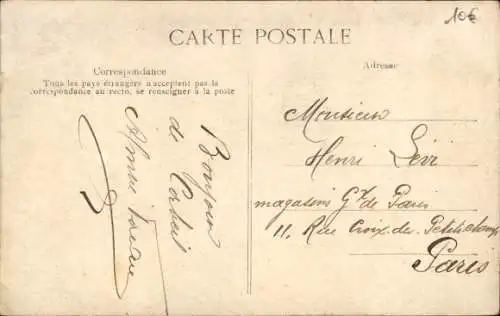 10€
CARTE POSTALE
Correspondance
Tous les pays étrangers n'acceptent pas la
correspondance au recto, se renseigner à la poste
Adresse
Bonjour
de Corbeil
Monsieur
Henri Lévi
magasins Gds de Paris
11, Rue Croix des Petits champs
Paris